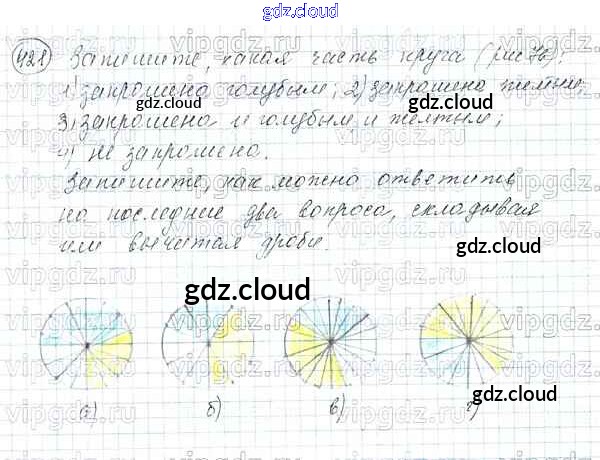 gdz.cloud
421 Запишите, какая часть круга (рис 76):
1) закрашена голубым; 2) закрашена желтым;
gdz.cloud
3) закрашена и голубым и желтым;
4) не закрашена.
Запишите, как можно ответить
на последние два вопроса, складывая
или вычитая дроби.
gdz.cloud
gdz.cloud
а) б) в) г)
gdz.cloud
gdz.cloud